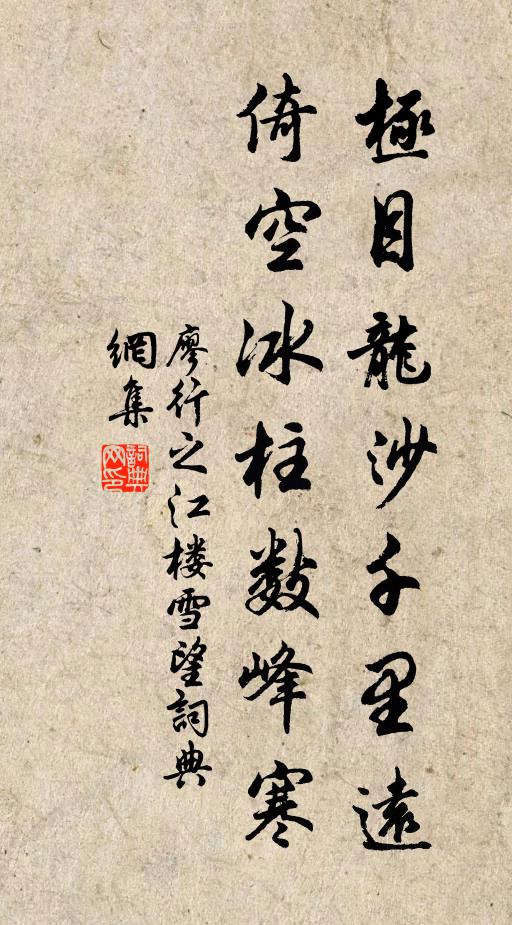 極目龍沙千里遠
倚空冰柱數峰寒
廖行之江楼雪望詞典
網集
詞典
网印